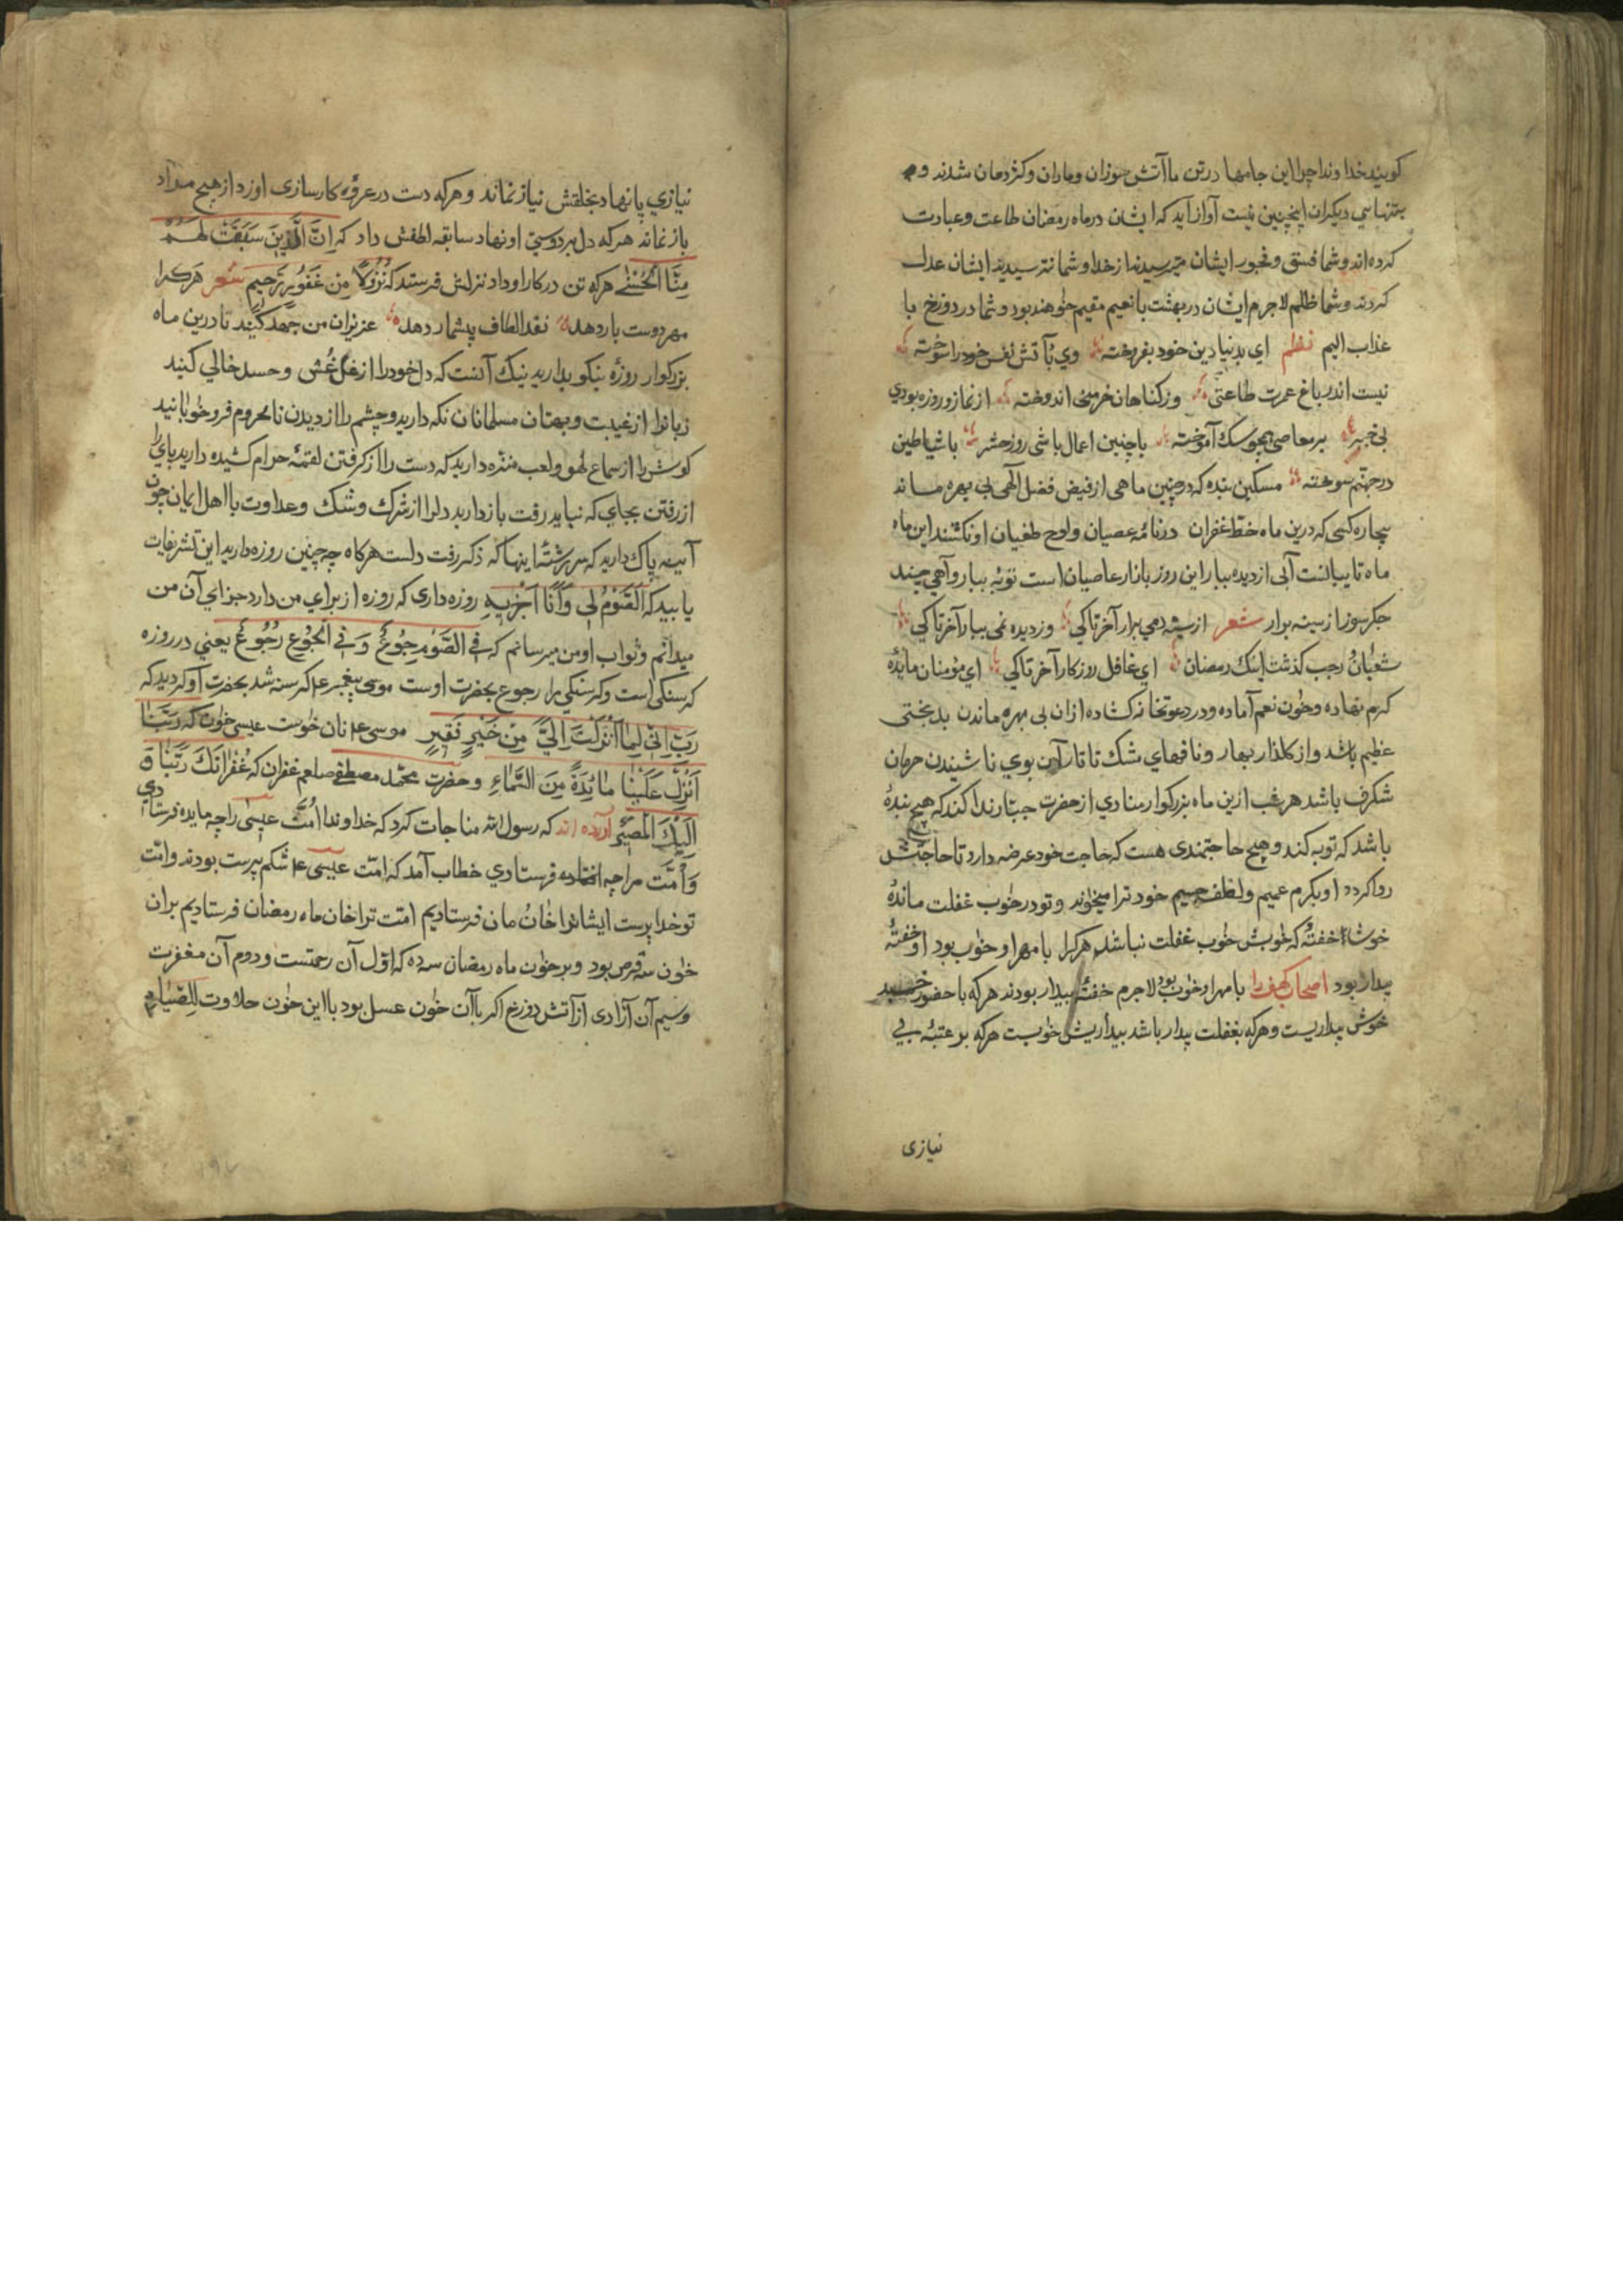 کویند خداوندا چرا این جامها در تن ما آتش سوزان و ماران و کژدمان شدند و
بتنهاسی دیکران اینچنین نیست آواز آید که ایشان در ماه رمضان طاعت و عبادت
کرده اند و شما فسق و فجور ایشان میترسیدند از خدا و شما نترسیدید ایشان عدل
کردند و شما ظلم لاجرم ایشان در بهشت با نعیم مقیم خواهند بود و شما در دوزخ با
عذاب الیم نظم ای بدنیا دین خود بفروخته وی بآتش نفس خود را سوخته
نیست اندر باغ عمرت طاعتی وز کناهان خرمنی اندوخته از نماز و روزه بودی
بی خبر بر معاصی همچو سک آموخته با چنین اعمال باشی روز حشر با شیاطین
در جهنم سوخته مسکین بنده که در چنین ماهی از فیض فضل آلهی بی بهره ماند
بیچاره کسی که درین ماه خط غفران در نامه عصیان و لوح طغیان او نکشند این ماه
ماه تایبانست آبی از دیده ببار این روز بازار عاصیان است توبه بیار و آهی چند
جکر سوز از سینه برار شعر از سینه دمی برار آخر تا کی وز دیده نمی ببار آخر تا کی
شعبان و رجب کذشت اینک رمضان ای غافل روزکار آخر تا کی ای مؤمنان مائده
کرم نهاده و خون نعم آماده و در دعوتخانه کشاده ازان بی بهره ماندن بدبختی
عظیم باشد و از کلذار بهار و نافهای مشک تاتار بوی ناشنیدن حرمان
شکرف باشد هر شب ازین ماه بزرکوار منادی از حضرت جبار ندا کند که هیچ بندۀ
باشد که توبه کند و هیچ حاجتمندی هست که حاجت خود عرضه دارد تا حاجتش
روا کردد او بکرم عمیم و لطف جسیم خود ترا میخواند و تو در خواب غفلت ماندۀ
خوشا خفتۀ که خوابش خواب غفلت نباشد هرکرا با مهر او خواب بود او خفتۀ
بیدار بود اصحاب کهف را با مهر او خواب بود لاجرم خفتۀ بیدار بودند هرکه با حضور خسبد
خوش بیداریست و هرکه بغفلت بیدار باشد بیداریش خوابست هرکه بر عتبۀ بی
نیازی
نیازی پا نهاد بخلقش نیاز نماند و هرکه دست در عروۀ کارسازی او زد از هیچ مراد
باز نماند هرکه دل بر دوستی او نهاد سابقه لطفش داد که اِنَّ الَّذِینَ سَبَقَتْ لَهُمْ
مِنَّا الْحُسْنٰی هرکه تن در کار او داد نزلش فرستد که نُزُلًا مِن غَفُورٍ رَحِیمٍ شعر هرکرا
مهر دوست بار دهد نقد الطاف بیشمار دهد عزیزان من جهد کنید تا درین ماه
بزرکوار روزۀ نیکو بدارید نیک آنست که دل خود را از غل و غش و حسد خالی کنید
زبانرا از غیبت و بهتان مسلمانان نکه دارید و چشم را از دیدن نامحروم فرو خوابانید
کوش را از سماع لهو و لعب منزه دارید که دست را از کرفتن لقمۀ حرام کشیده دارید پای را
از رفتن بجای که نباید رفت باز دارید دلرا از شرک و شک و عداوت با اهل ایمان چون
آیینه پاک دارید که سر رشتۀ اینها که ذکر رفت دلست هرکاه چه چنین روزه دارید این تشریفات
یابید که اَلصَّوْمُ لِی وَاَنَا اَجْزِی بِهِ روزه داری که روزه از برای من دارد جزای آن من
میدانم و ثواب او من میرسانم که فِی الصَّوْمِ جُوعٌ وَ فِی الْجُوعِ رُجُوعٌ یعنی در روزه
کرسنکی است و کرسنکی را رجوع بحضرت اوست موسی پیغمبر ع م کرسنه شد بحضرت او کردید که
رَبِّ اِنِّی لِمَا اَنْزَلْتَ اِلَیَّ مِنْ خَیْرٍ فَقِیرٍ موسی ع م نان خواست عیسی خوان که رَبَّنَا
اَنْزِلْ عَلَیْنَا مَائِدَةً مِنَ السَّمَاءِ و حضرت محمد مصطفی صلعم غفران که غُفْرَانَکَ رَبَّنَا وَ
اِلَیْکَ الْمَصِیرُ آورده اند که رسول الله مناجات کرد که خداوندا اُمَّت عیسی را چه مایده فرستادی
وَ اُمَّت مرا چه فرستادی خطاب آمد که امّت عیسی ع م شکم پرست بودند و امّت
تو خدا پرست ایشانرا خان مان فرستادیم امّت ترا خان ماه رمضان فرستادیم بران
خون سه قرص بود و بر خون ماه رمضان سه ده که اوّل آن رحمتست و دوم آن مغفرت
و سیم آن آزادی از آتش دوزخ اکر با آن خون عسل بود با این خون حلاوت لِلصَّائِمِ